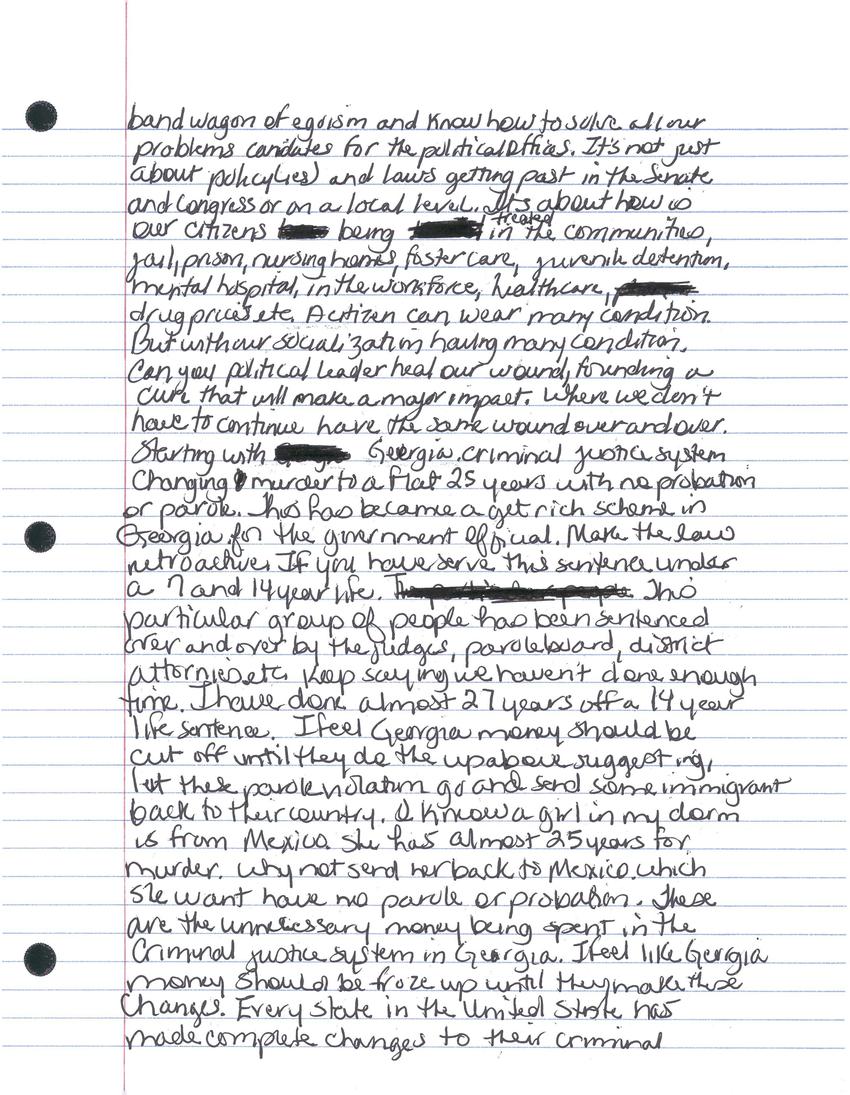 bandwagon of egoism and know how to solve all our
problems candates for the political offices. It's not just
about policy(ies) and laws getting past in the Senate
and Congress or on a local level. It's about how is
our citizens being treated in the communities,
jail, prison, nursing homes, foster care, juvenile detention,
mental hospital, in the workforce, healthcare,
drug prices etc. A citizen can wear many condition.
But with our socialization having many condition.
Can you political leader heal our wound, founding a
cure that will make a major impact. Where we don't
have to continue have the same wound over and over.
Starting with Georgia criminal justice system
Changing murder to a flat 25 years with no probation
or parole. This has became a get rich scheme in
Georgia for the government official. Make the law
retroactive. If you have serve this sentence under
a 7 and 14 year life. This
particular group of people has been sentenced
over and over by the judges, parole board, district
attornies etc. Keep saying we haven't done enough
time. I have done almost 27 years off a 14 year
life sentence. I feel Georgia money should be
cut off until they do the up above suggesting,
let these parole violation go and send some immigrant
back to their country. I know a girl in my dorm
is from Mexico. She has almost 25 years for
murder. Why not send her back to Mexico. which
she want have no parole or probation. These
are the unnecessary money being spent in the
Criminal justice system in Georgia. I feel like Georgia
money should be froze up until they make these
Changes. Every state in the United State has
made complete changes to their criminal